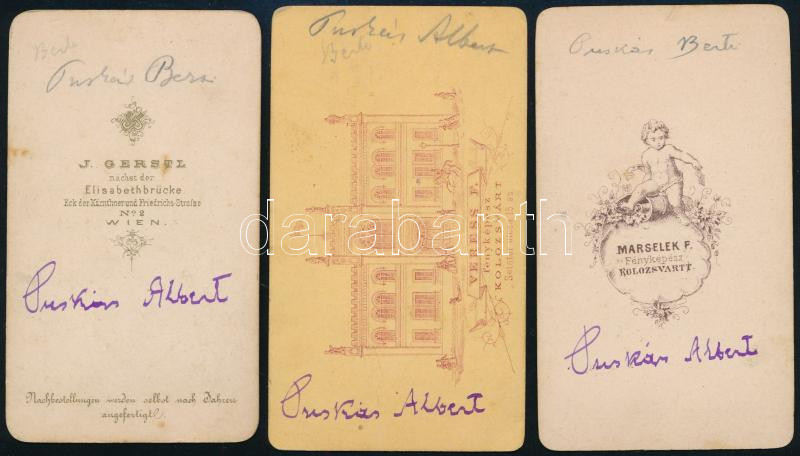 Berti
Puskás Berti
J. GERSTL
nächst der
Elisabethbrücke
Eck der Kärnthner und Friedrichs-Strafse
Nº 2
WIEN.
Puskás Albert
Nachbestellungen werden selbst nach Jahren
angefertigt.
Puskás Albert
Berti
VERESS F.
Fényképész
KOLOZSVÁRT
Puskás Albert
Puskás Berti
MARSELEK F.
Fényképész
KOLOZSVÁRTT
Puskás Albert
darabanth.com